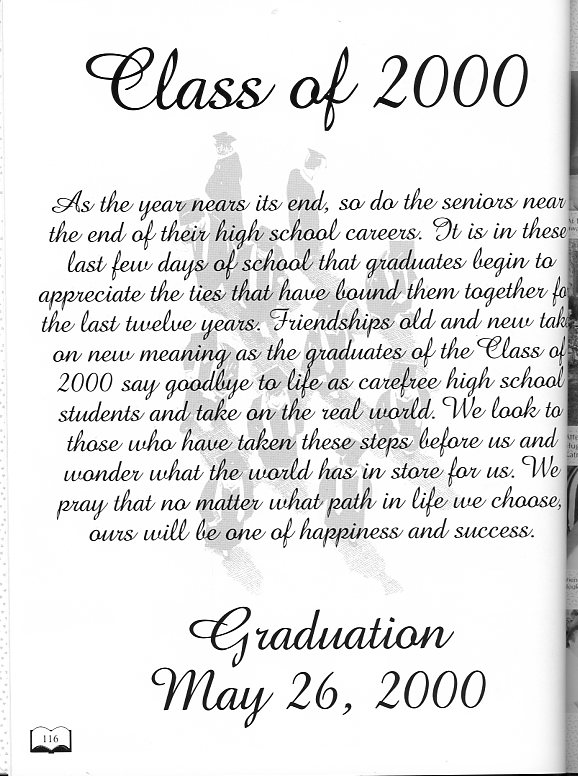 Class of 2000
As the year nears its end, so do the seniors near
the end of their high school careers. It is in these
last few days of school that graduates begin to
appreciate the ties that have bound them together fo
the last twelve years. Friendships old and new tak
on new meaning as the graduates of the Class of
2000 say goodbye to life as carefree high school
students and take on the real world. We look to
those who have taken these steps before us and
wonder what the world has in store for us. We
pray that no matter what path in life we choose,
ours will be one of happiness and success.
Graduation
May 26, 2000
116